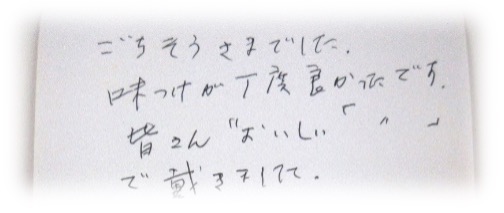 ごちそうさまでした.
味つけが丁度良かったです.
皆さん"おいしい「 〃 」
で戴きました.